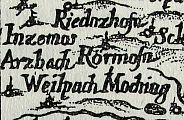 Riednzhofn
Inzemos Sch
Arzbach Rörmosn
Weilpach Moching